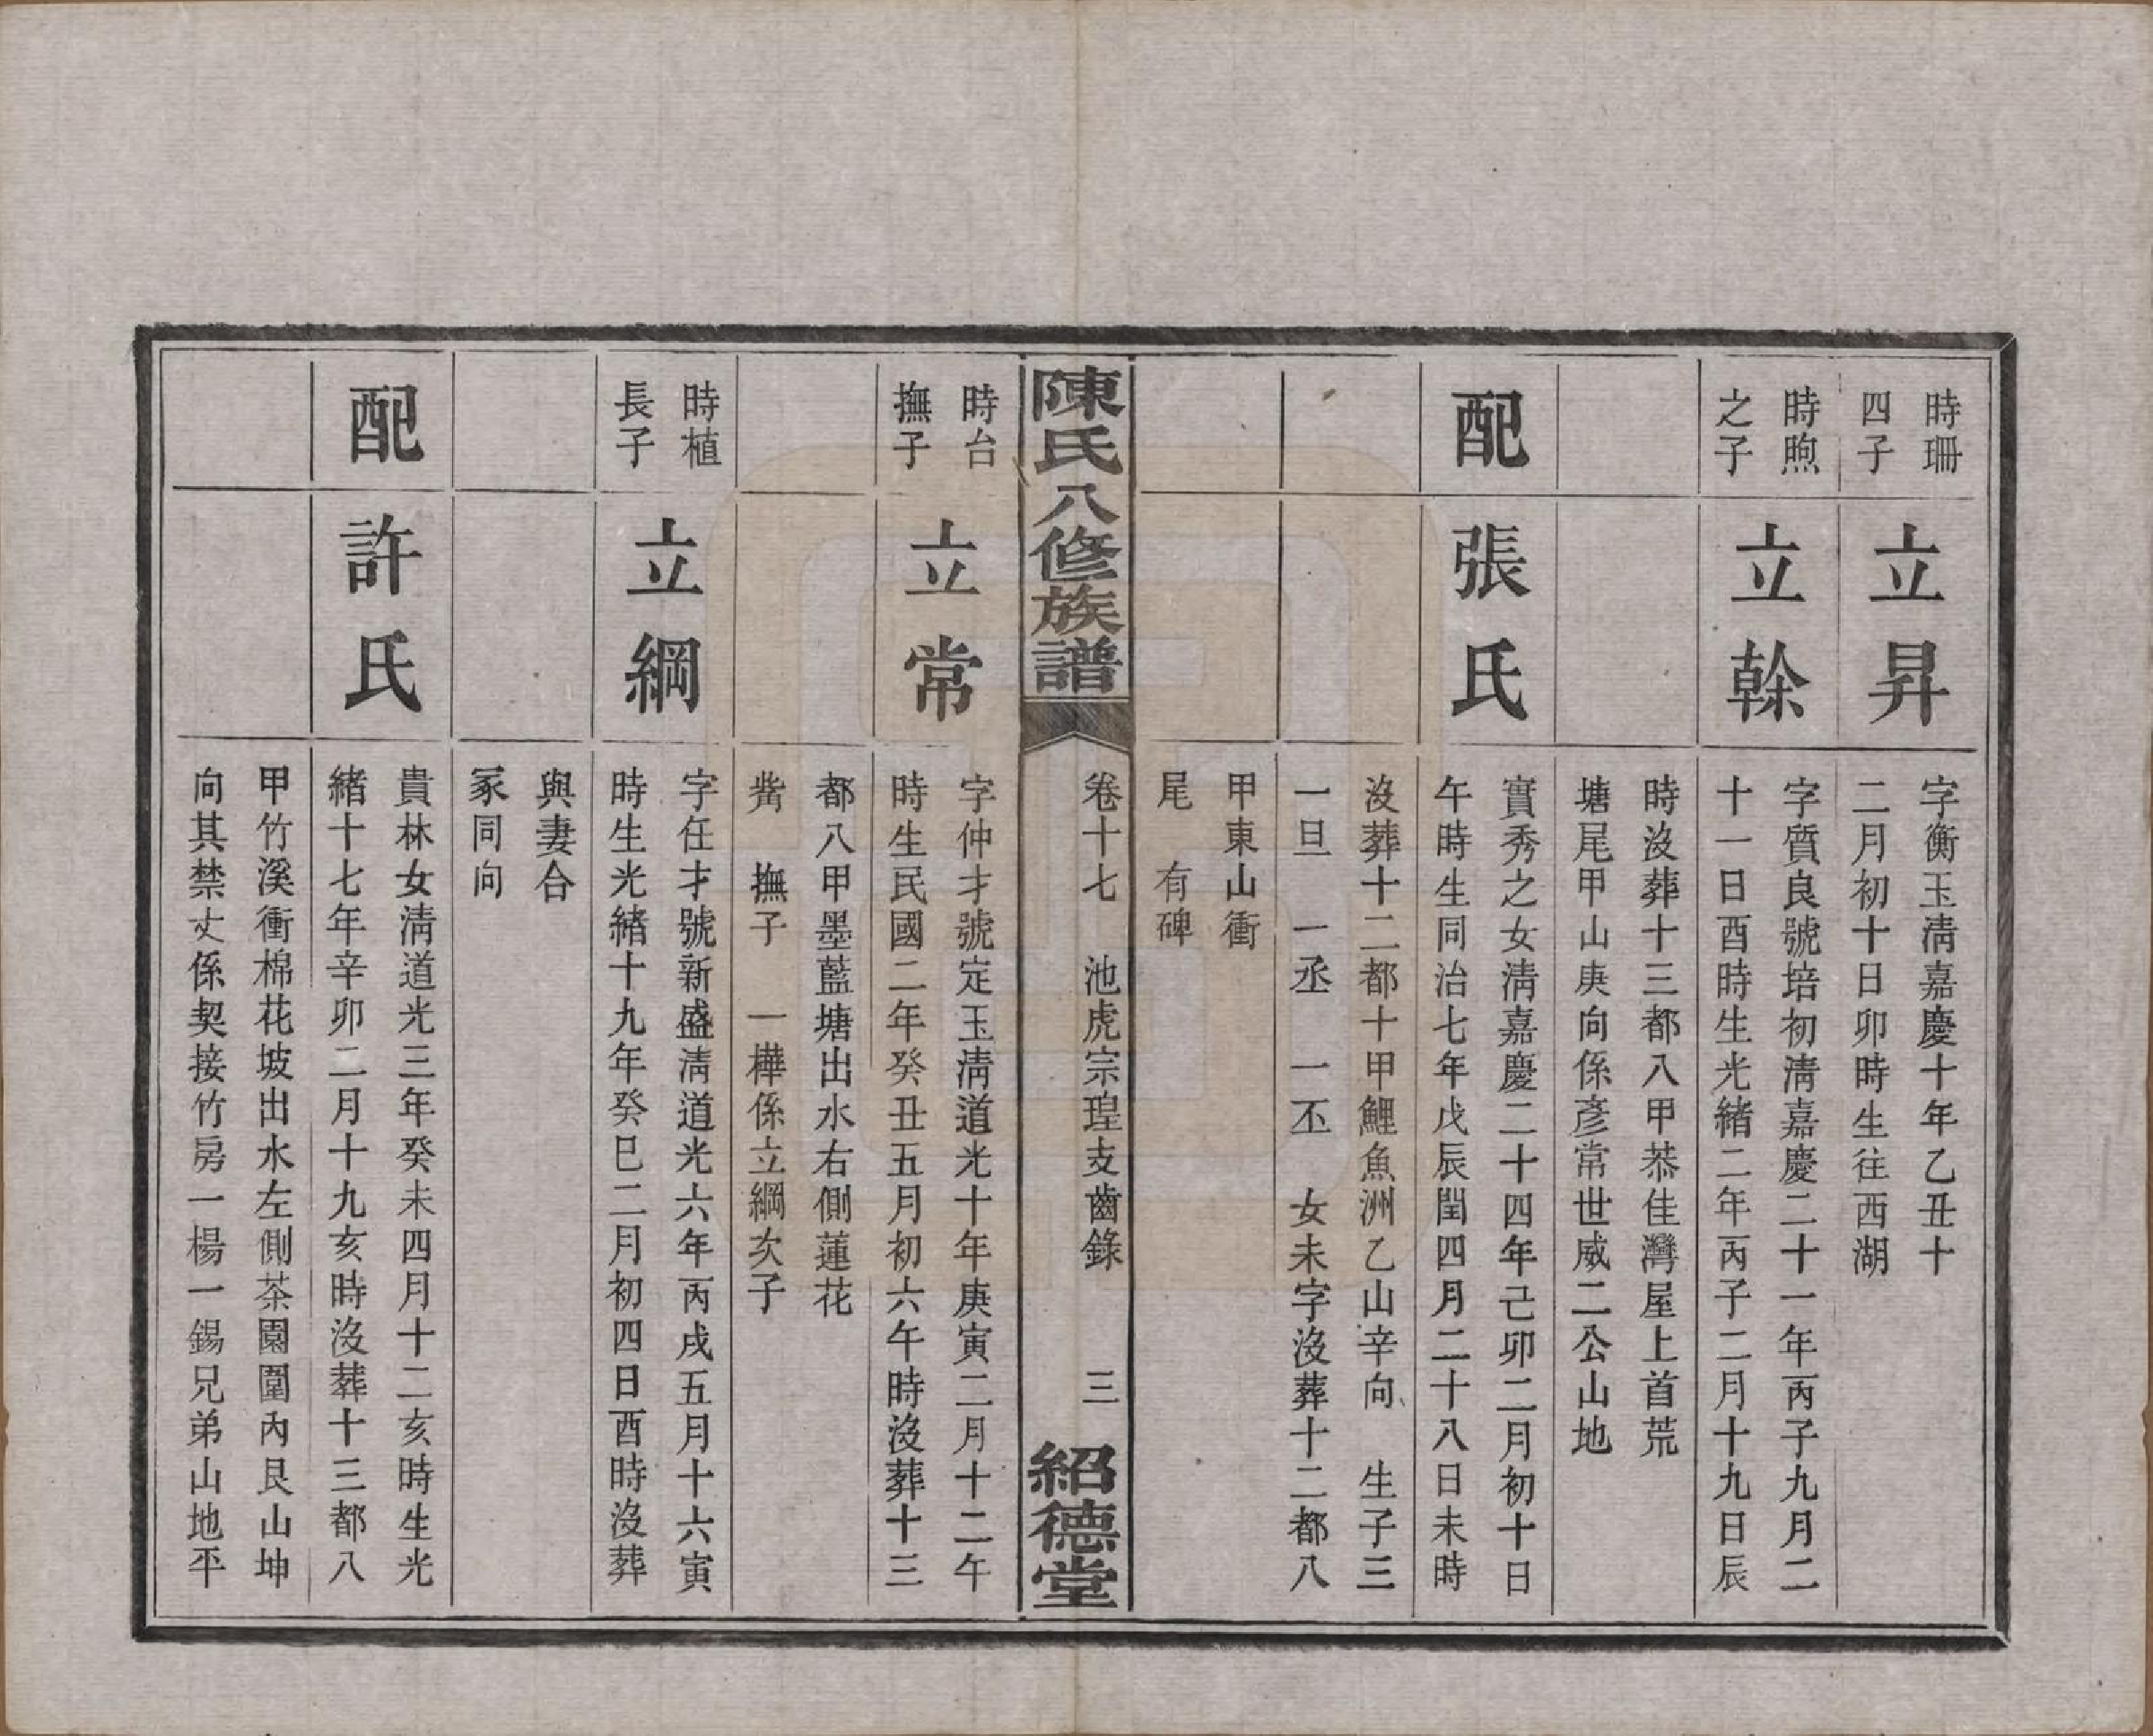 時珊
四子
立昇
字衡玉淸嘉慶十年乙丑十
二月初十日卯時生往西湖
時煦
之子
立榦
字質良號培初淸嘉慶二十一年丙子九月二
十一日酉時生光緒二年丙子二月十九日辰
時沒葬十三都八甲恭佳灣屋上首荒
塘尾甲山庚向係彥常世威二公山地
配
張氏
實秀之女淸嘉慶二十四年己卯二月初十日
午時生同治七年戊辰閏四月二十八日未時
沒葬十二都十甲鯉魚洲乙山辛向 生子三
一旦 一丞 一丕 女未字沒葬十二都八
甲東山衝
尾 有碑
陳氏八修族譜
卷十七 池虎宗瑝支齒錄 三
紹德堂
時台
撫子
立常
字仲才號定玉淸道光十年庚寅二月十二午
時生民國二年癸丑五月初六午時沒葬十三
都八甲墨藍塘出水右側蓮花
觜 撫子 一樺係立綱次子
時植
長子
立綱
字任才號新盛淸道光六年丙戌五月十六寅
時生光緒十九年癸巳二月初四日酉時沒葬
與妻合
冢同向
配
許氏
貴林女淸道光三年癸未四月十二亥時生光
緒十七年辛卯二月十九亥時沒葬十三都八
甲竹溪衝棉花坡出水左側茶園圍內艮山坤
向其禁丈係契接竹房一楊一錫兄弟山地平